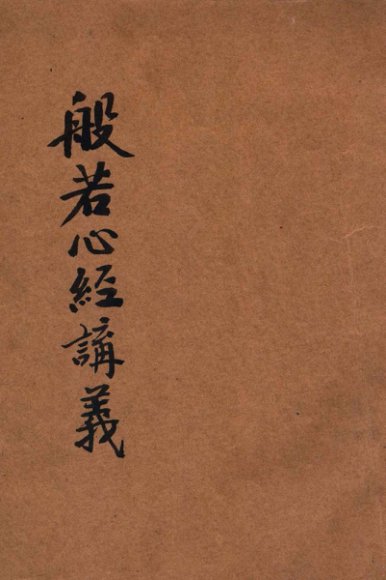 般若心經講義